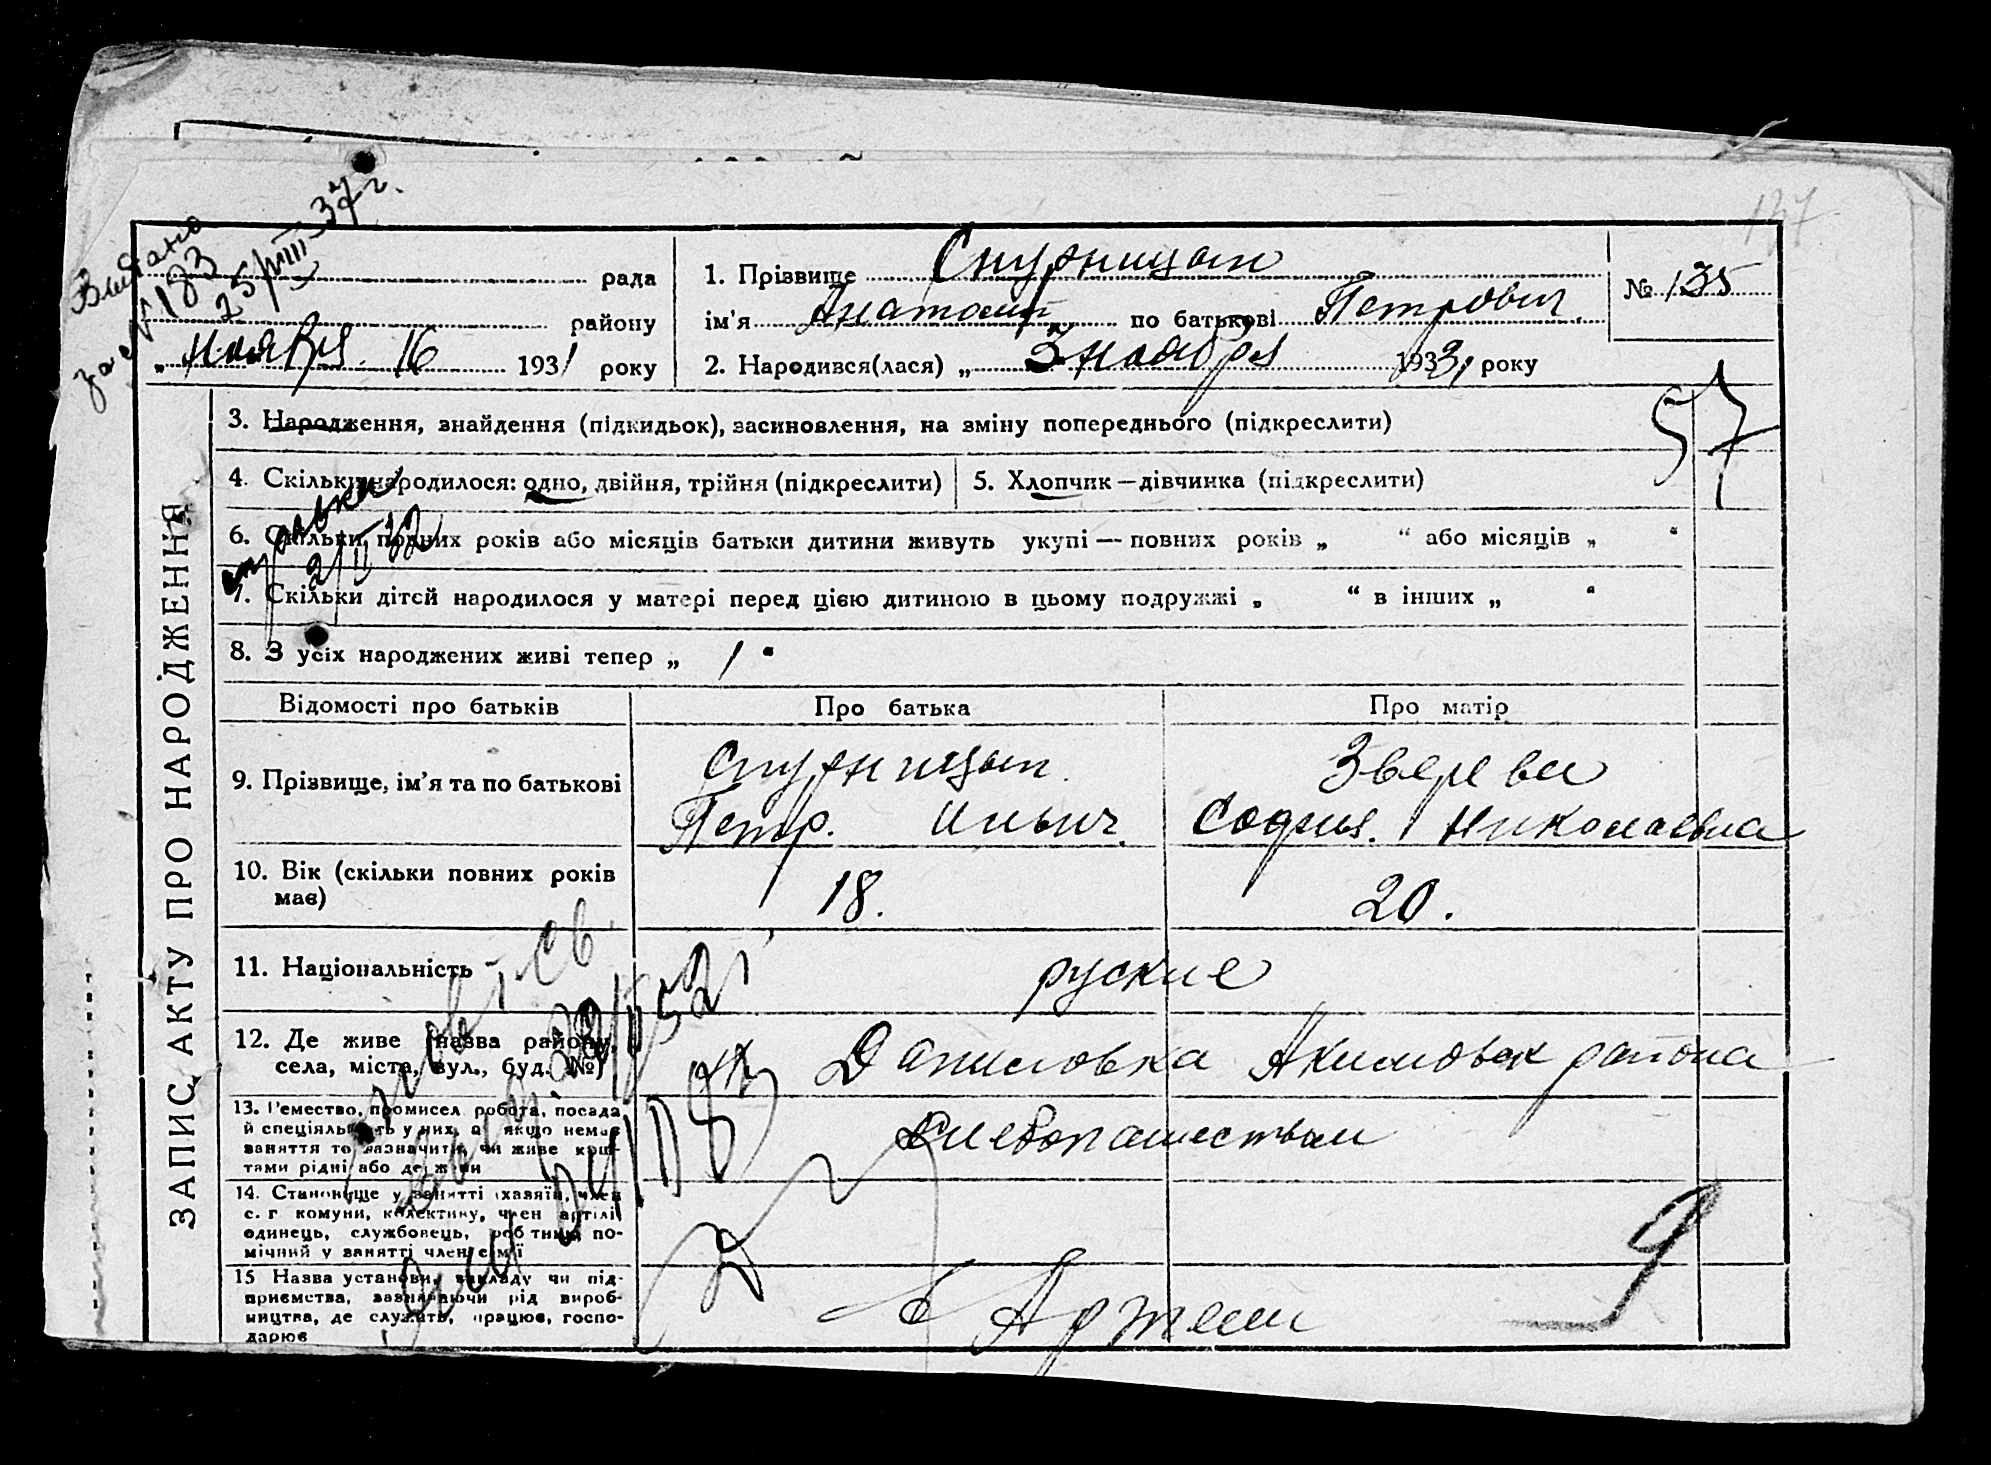 137
Выдано
за № 183
25/VIII-37 г.
рада
району
„ Ноября 16 1931 року
1. Прізвище Спурницын
ім'я Анатолий по батькові Петрович
2. Народився(лася) „ 3 ноября 1931 року
№ 135
57
3. Народження, знайдення (підкидьок), засиновлення, на зміну попереднього (підкреслити)
4. Скільки народилося: одно, двійня, трійня (підкреслити)
5. Хлопчик—дівчинка (підкреслити)
справка
2/II 32
6. Скільки повних років або місяців батьки дитини живуть укупі — повних років „ “ або місяців „ “
7. Скільки дітей народилося у матері перед цією дитиною в цьому подружжі „ “ в інших „ “
8. З усіх народжених живі тепер „ 1 “
ЗАПИС АКТУ ПРО НАРОДЖЕННЯ
Відомості про батьків
Про батька
Про матір
9. Прізвище, ім'я та по батькові
Спурницын
Петр. Ильич.
Зверева
София. Николаевна
10. Вік (скільки повних років має)
18.
20.
11. Національність
руские
12. Де живе (назва району,
села, міста, вул., буд. №)
Даниловка Акимовск района
13. Ремество, промисел, робота, посада
й спеціяльність у них, а якщо немає
заняття то зазначити, чи живе кош-
тами рідні або держави
Хлебопашеством
14. Становище у занятті (хазяїн, член
с.-г. комуни, колективу, член артілі
одинець, службовець, робітник, по-
мічний у занятті член сем'ї
15 Назва установи, закладу чи під-
приємства, зазначаючи рід вироб-
ництва, де служить, працює, госпо-
дарює
в Артели
9